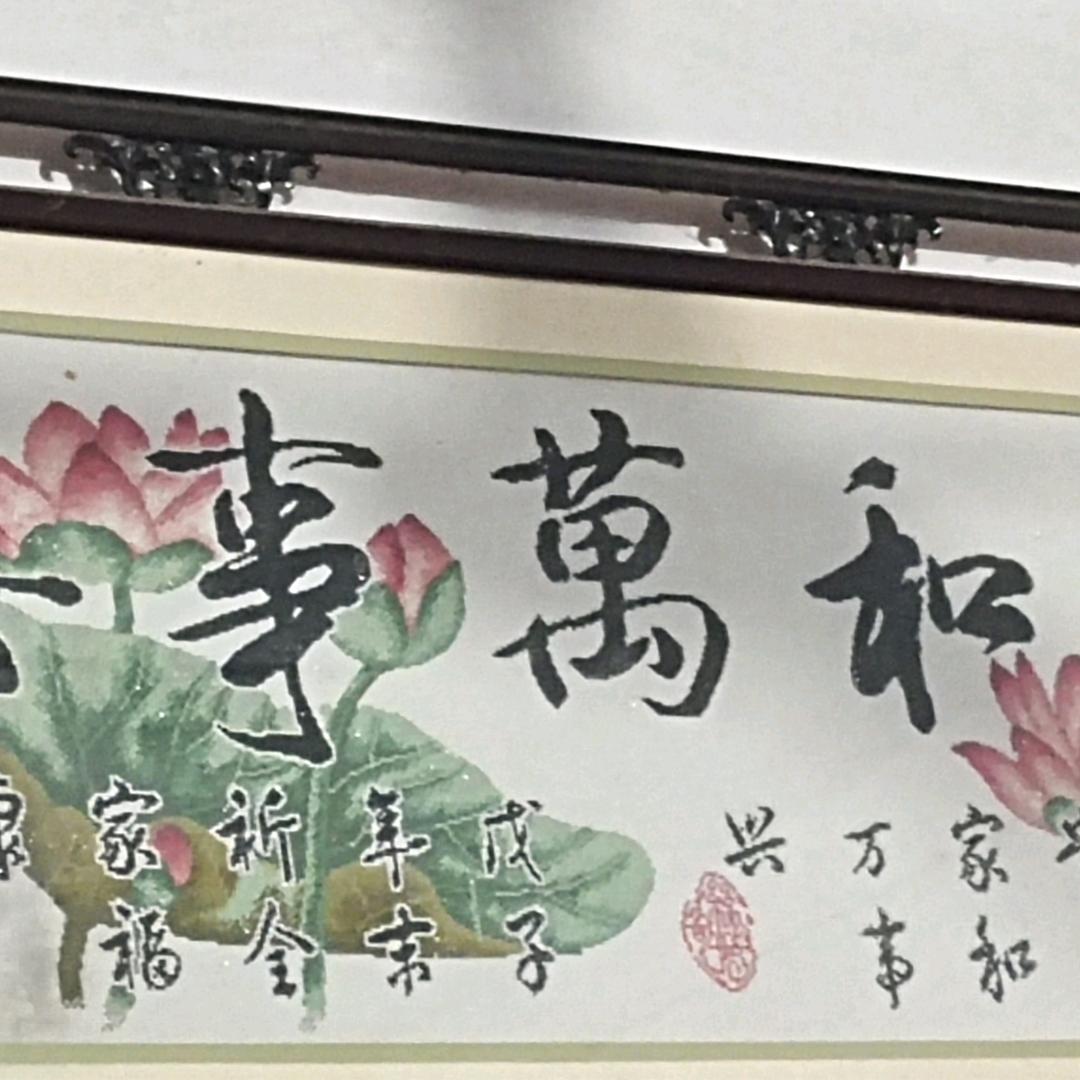 和萬事
家和
万事
兴
戊子
年末
祈全
家福